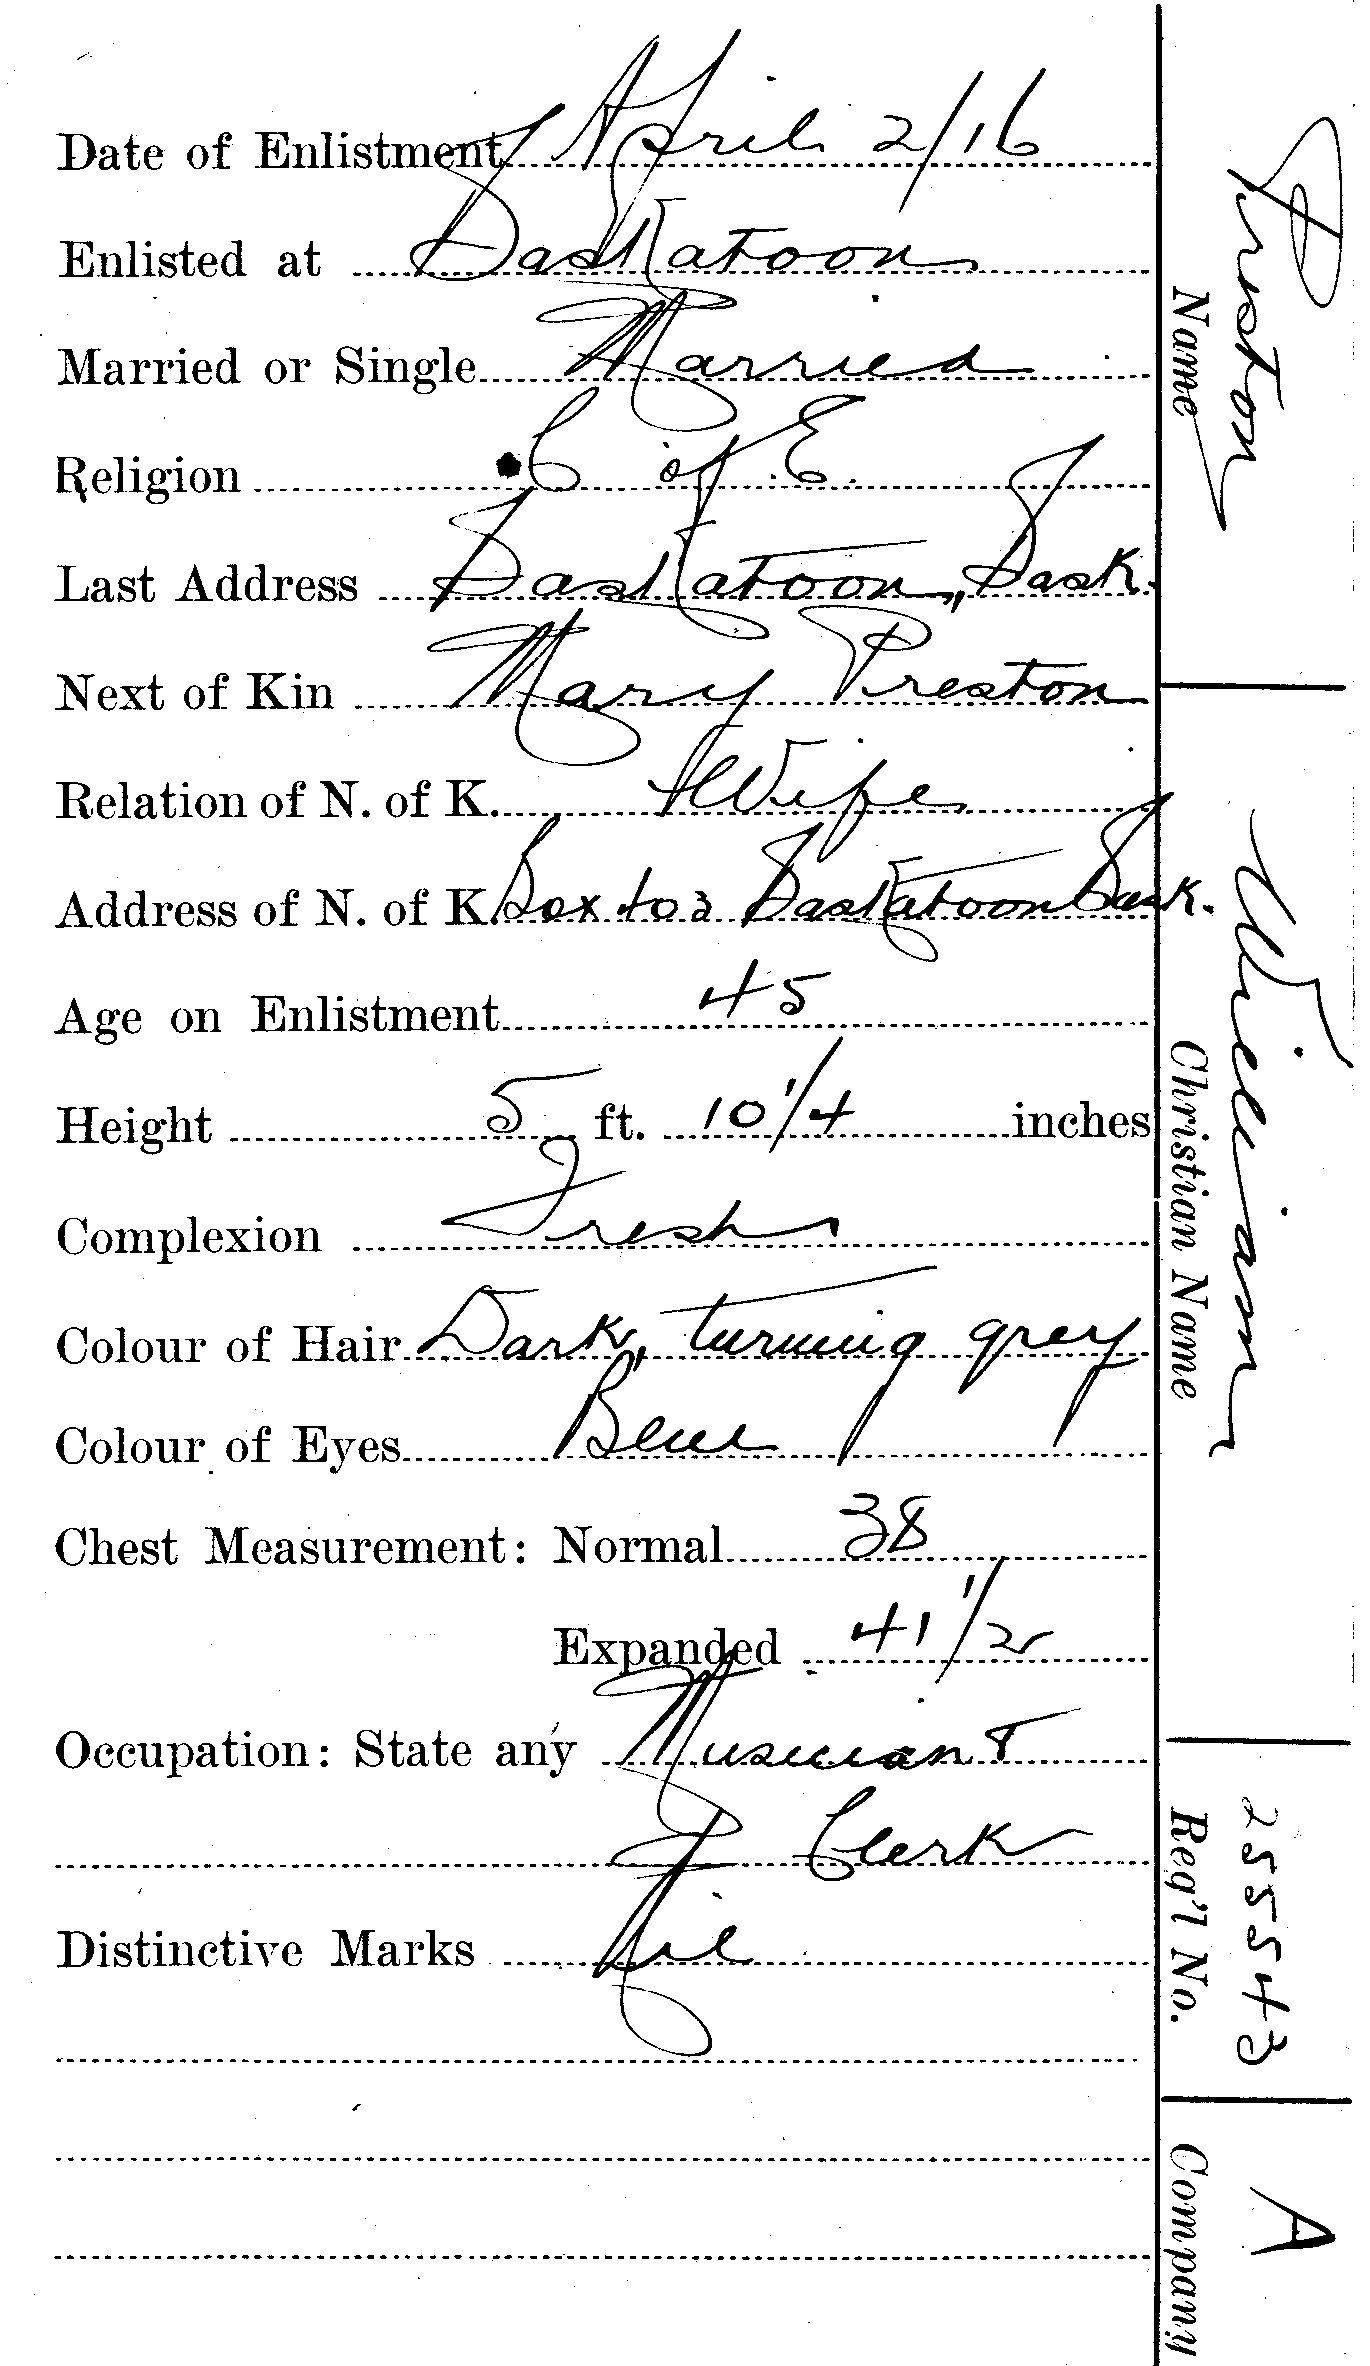 Date of Enlistment April 2/16
Enlisted at Saskatoon
Married or Single Married
Religion C of E.
Last Address Saskatoon, Sask.
Next of Kin Mary Preston
Relation of N. of K. Wife
Address of N. of K. Box Saskatoon Sask.
Age on Enlistment 45
Height 5 ft. 10 1/4 inches
Complexion Fresh
Colour of Hair Dark, turning grey
Colour of Eyes Blue
Chest Measurement: Normal 38
Expanded 41 1/2
Occupation: State any Musician &
Clerk
Distinctive Marks Nil
Preston
Name
William
Christian Name
255543
Reg'l No.
A
Company